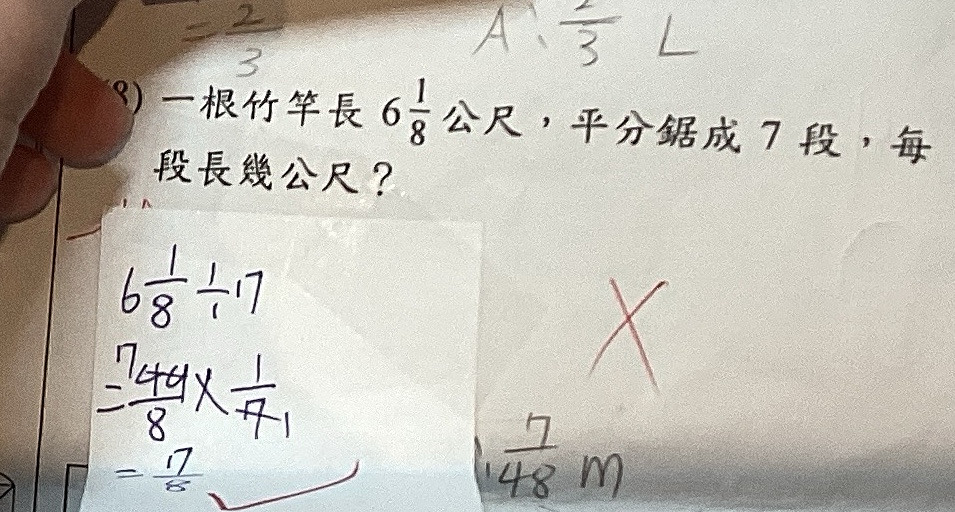 = 2/3
A、2/3 L
8) 一根竹竿長 6 1/8 公尺,平分鋸成 7 段,每
段長幾公尺?
6 1/8 ÷ 7
= 49/8 × 1/7
7 1
= 7/8
7/48 m